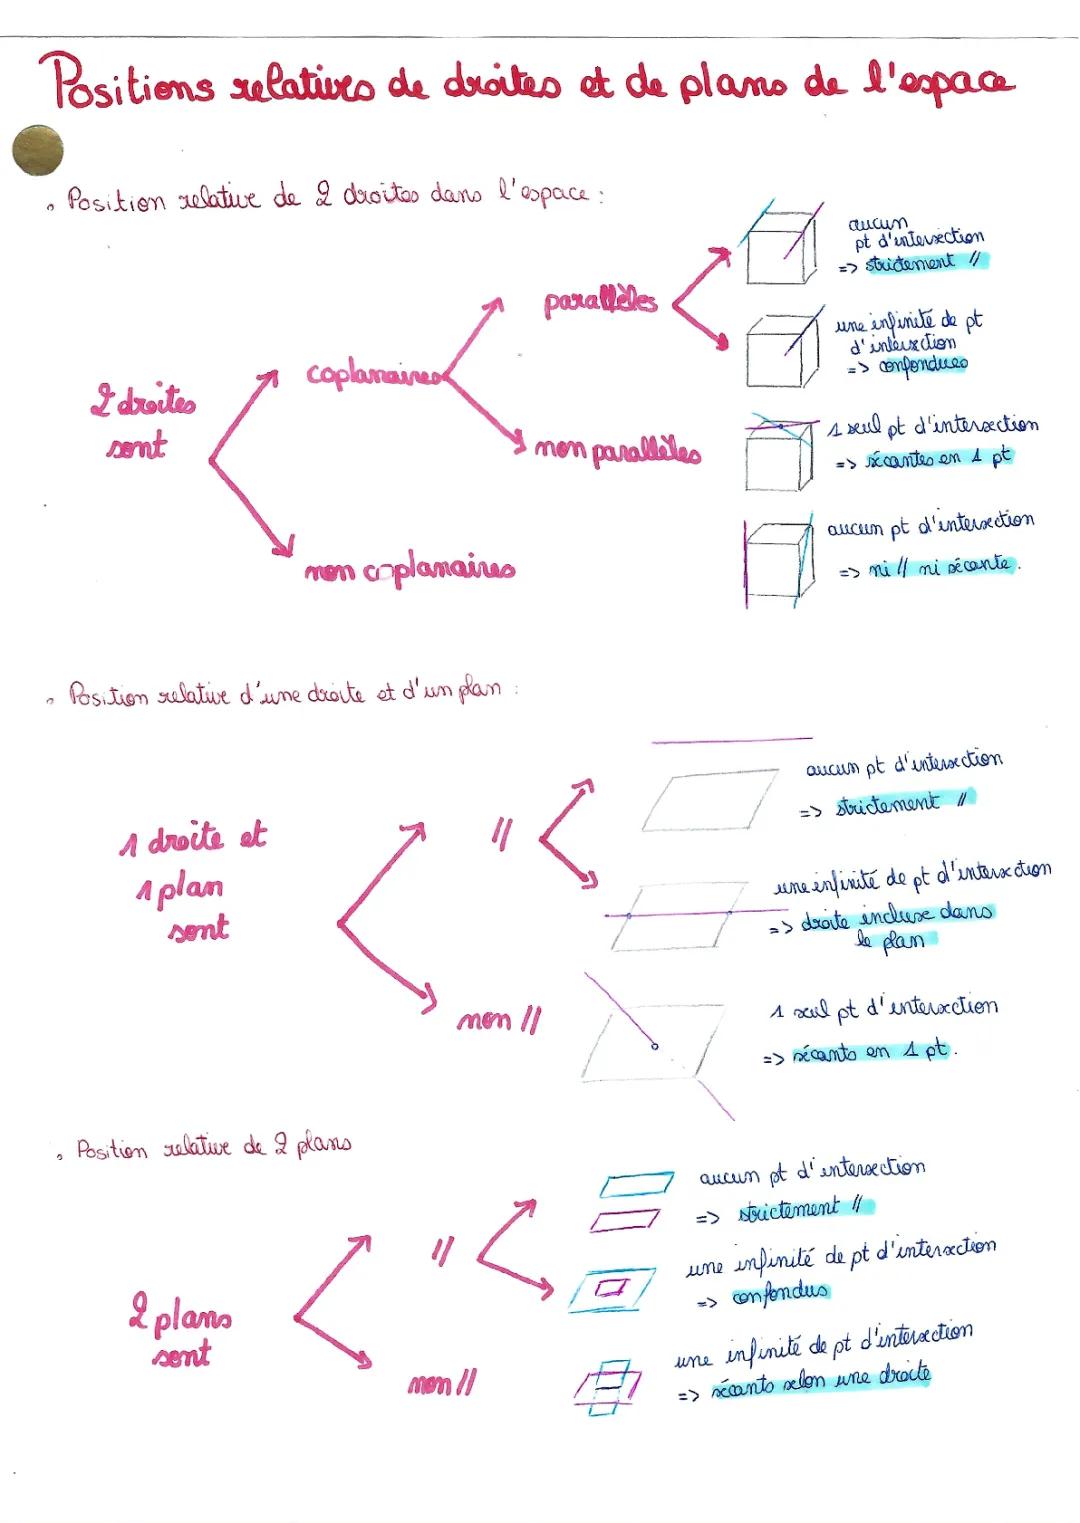 Positions relatives de droites et de plans de l'espace
• Position relative de 2 droites dans l'espace :
2 droites
sont
coplanaires
parallèles
aucun
pt d'intersection
=> strictement //
une infinité de pt
d'intersection
=> confondues
non parallèles
1 seul pt d'intersection
=> sécantes en 1 pt
non coplanaires
aucun pt d'intersection
=> ni // ni sécante.
• Position relative d'une droite et d'un plan :
1 droite et
1 plan
sont
//
aucun pt d'intersection
=> strictement //
une infinité de pt d'intersection
=> droite incluse dans
le plan
non //
1 seul pt d'intersection
=> sécants en 1 pt.
• Position relative de 2 plans
2 plans
sont
//
aucun pt d'intersection
=> strictement //
une infinité de pt d'intersection
=> confondus
non //
une infinité de pt d'intersection
=> sécants selon une droite